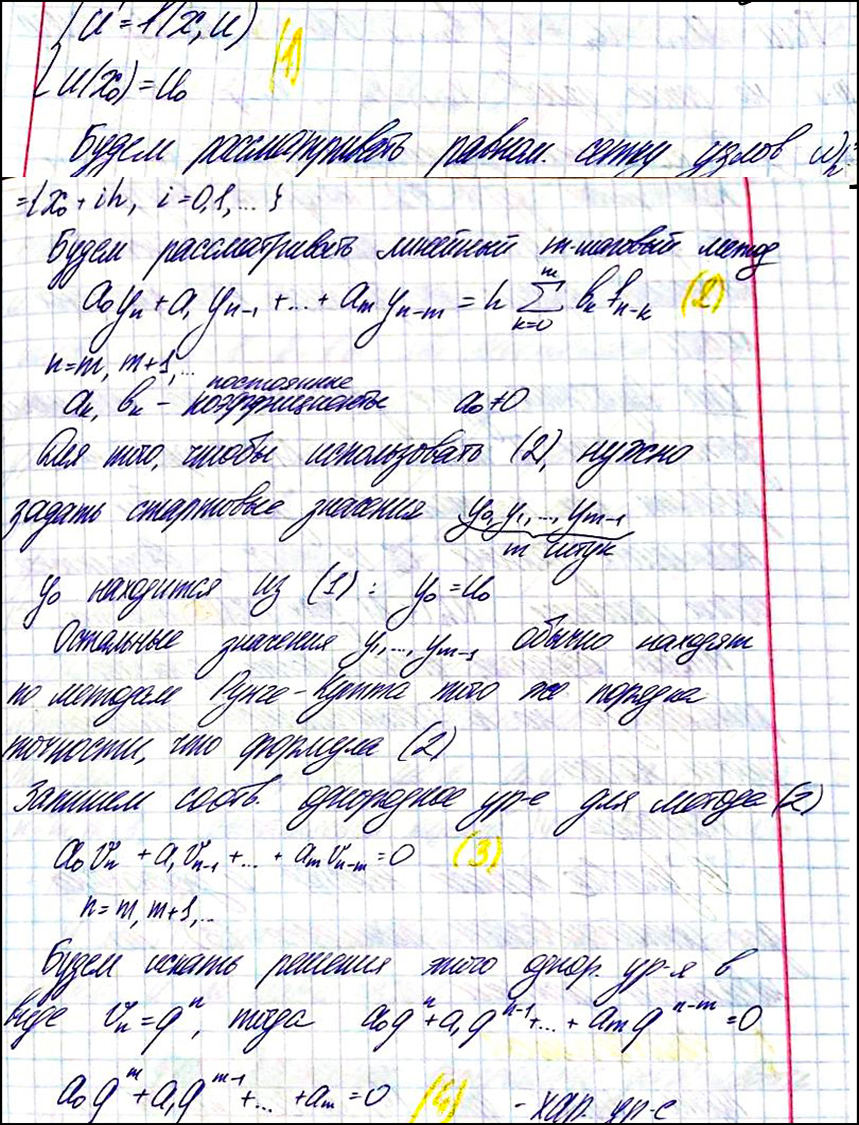 { u' = f(x, u)
{ u(x₀) = u₀ (1)
Будем рассматривать равном. сетку узлов ωₕ =
= {x₀ + ih, i = 0,1,... }
Будем рассматривать линейный m-шаговый метод
a₀yₙ + a₁yₙ₋₁ + ... + aₘyₙ₋ₘ = h ∑ₖ₌₀ᵐ bₖ fₙ₋ₖ (2)
n = m, m+1, ...
постоянные
aₖ, bₖ - коэффициенты a₀ ≠ 0
Для того, чтобы использовать (2), нужно
задать стартовые значения y₀, y₁, ..., yₘ₋₁
m штук
y₀ находится из (1) : y₀ = u₀
Остальные значения y₁, ..., yₘ₋₁ обычно находят
по методам Рунге-Кутта того же порядка
точности, что формула (2)
Запишем соотв. однородное ур-е для метода (2)
a₀vₙ + a₁vₙ₋₁ + ... + aₘvₙ₋ₘ = 0 (3)
n = m, m+1, ..
Будем искать решения этого однор. ур-я в
виде vₙ = qⁿ, тогда a₀qⁿ + a₁qⁿ⁻¹ + ... + aₘqⁿ⁻ᵐ = 0
a₀qᵐ + a₁qᵐ⁻¹ + ... + aₘ = 0 (4) - хар. ур-е